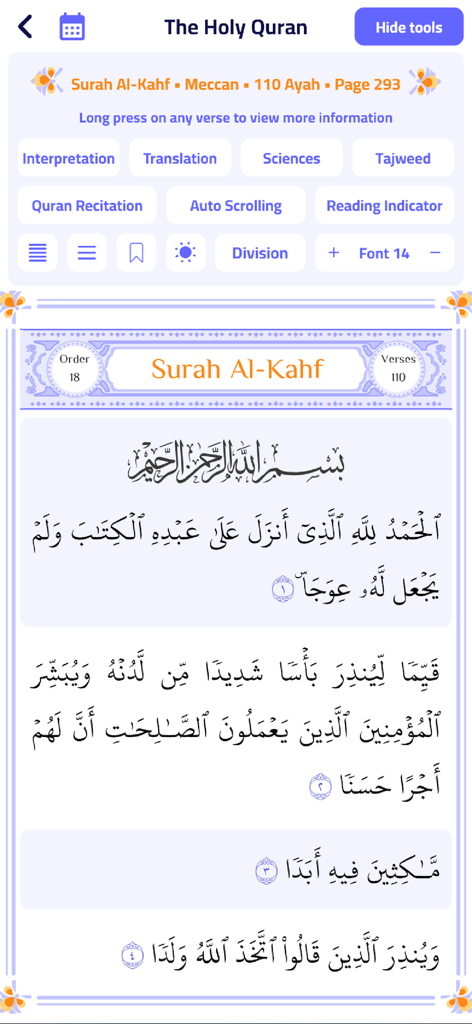 The Holy Quran
Hide tools
Surah Al-Kahf • Meccan • 110 Ayah • Page 293
Long press on any verse to view more information
Interpretation Translation Sciences Tajweed
Quran Recitation Auto Scrolling Reading Indicator
Division + Font 14 −
Order
18
Surah Al-Kahf
Verses
110
بِسْمِ اللَّهِ الرَّحْمَٰنِ الرَّحِيمِ
ٱلْحَمْدُ لِلَّهِ ٱلَّذِىٓ أَنزَلَ عَلَىٰ عَبْدِهِ ٱلْكِتَـٰبَ وَلَمْ
يَجْعَل لَّهُۥ عِوَجَاۜ ١
قَيِّمًا لِّيُنذِرَ بَأْسًا شَدِيدًا مِّن لَّدُنْهُ وَيُبَشِّرَ
ٱلْمُؤْمِنِينَ ٱلَّذِينَ يَعْمَلُونَ ٱلصَّـٰلِحَـٰتِ أَنَّ لَهُمْ
أَجْرًا حَسَنًا ٢
مَّـٰكِثِينَ فِيهِ أَبَدًا ٣
وَيُنذِرَ ٱلَّذِينَ قَالُوا۟ ٱتَّخَذَ ٱللَّهُ وَلَدًا ٤